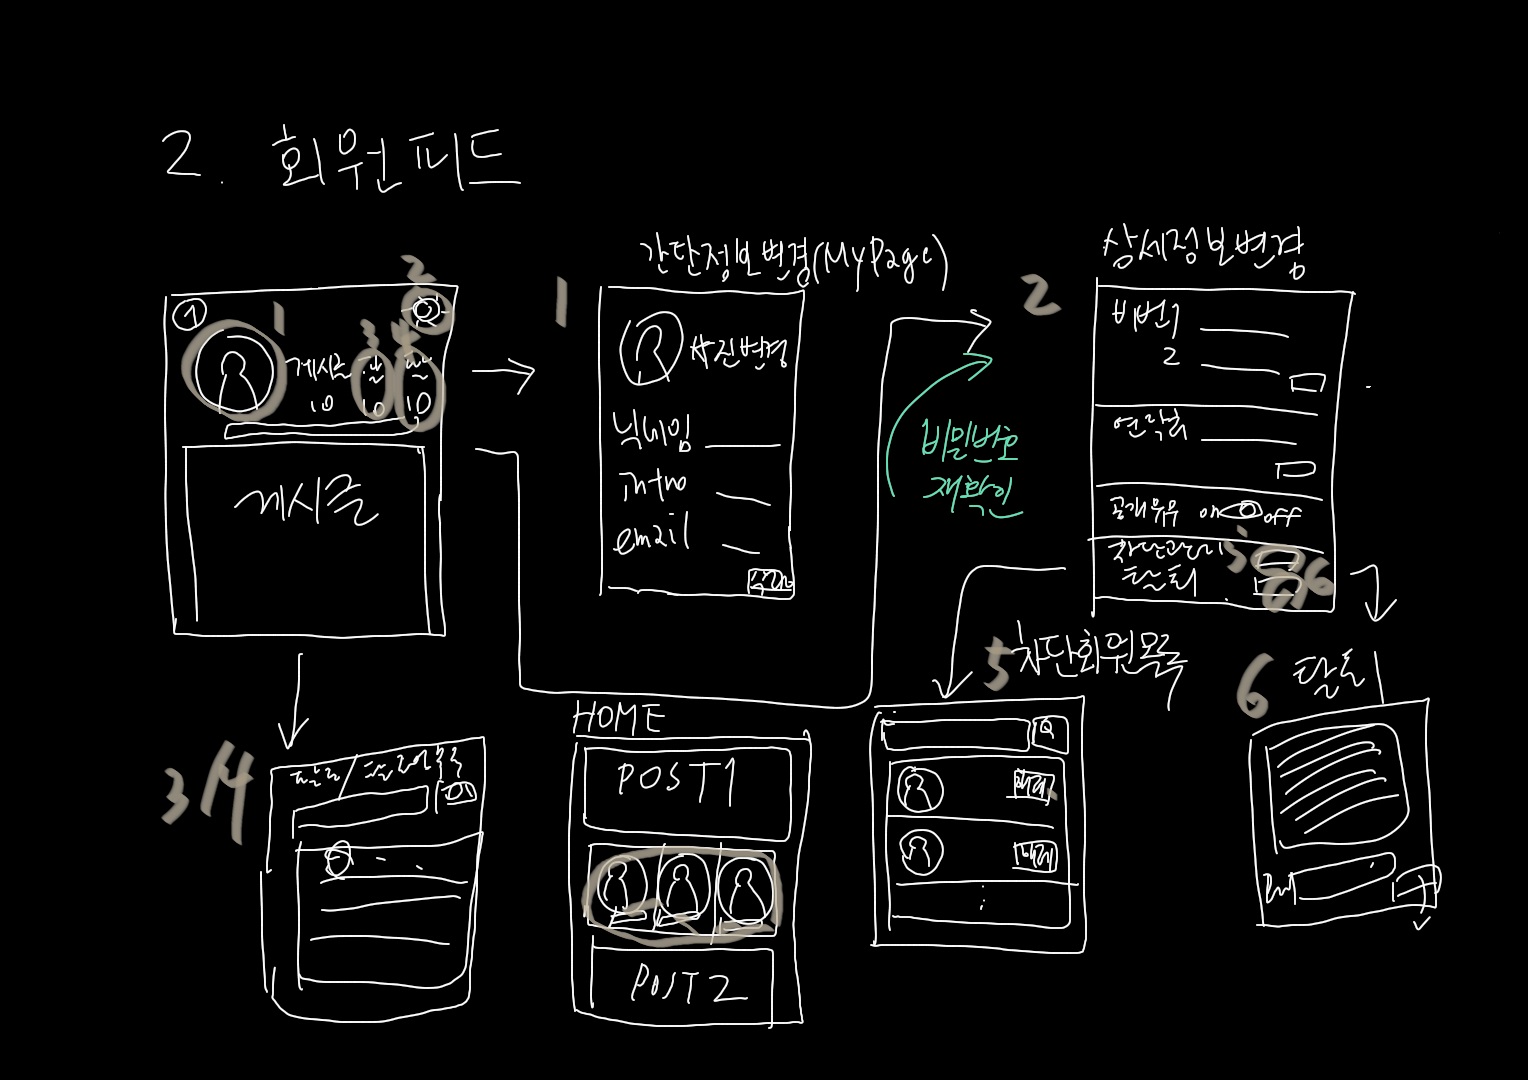 2. 회원피드
1
2
1
3
4
게시글
10
10
10
게시글
1
간단정보변경(MyPage)
사진변경
닉네임
intro
email
비밀번호
재확인
2
상세정보변경
비번1
2
연락처
공개유무 on off
차단관리
탈퇴
5
6
3/4
HOME
POST1
POST2
5
차단회원목록
해제
해제
6
탈퇴